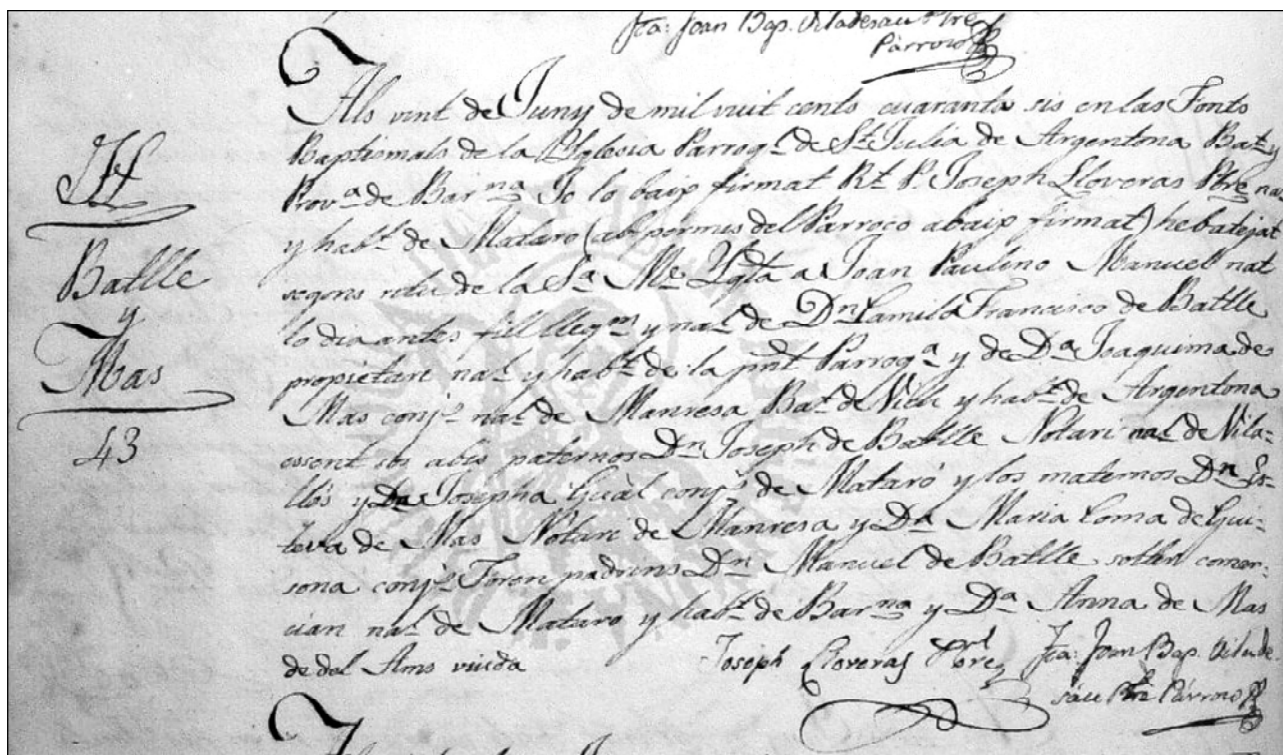 Fra: Joan Bap. Viladesau Pbre
Párroco
Als vint de Juny de mil vuit cents cuaranta sis en las Fonts
Baptismals de la Yglesia Parroql. de St. Julia de Argentona Bat. y
Prova. de Barna. Jo lo baix firmat Rt. P. Joseph Lloveras Pbre nal.
y habt. de Mataro (ab permis del Parroco abaix firmat) he batejat
segons ritu de la Sa. Me. Ygta. a Joan Paulino Manuel nat
lo dia antes fill llegm. y nal. de Dn. Camilo Francisco de Batlle
propietari nal. y habt. de la pnt Parroqa. y de Da. Joaquima de
Mas conjs. nal. de Manresa Bat. de Vich y habt. de Argentona
essent sos abis paternos Dn. Joseph de Batlle Notari nal. de Vila-
llós y Da. Josepha Gual conjs. de Mataró y los maternos Dn. Es-
teva de Mas Notari de Manresa y Da. Maria Coma de Gui-
sona conjs. Foren padrins Dn. Manuel de Batlle solter comer-
cian nal. de Mataro y habt. de Barna. y Da. Anna de Mas
de dal Ams viuda
Joseph Lloveras Pbre
Fra: Joan Bap. Vilade-
sau Pbre Párroco
Batlle
y
Mas
43